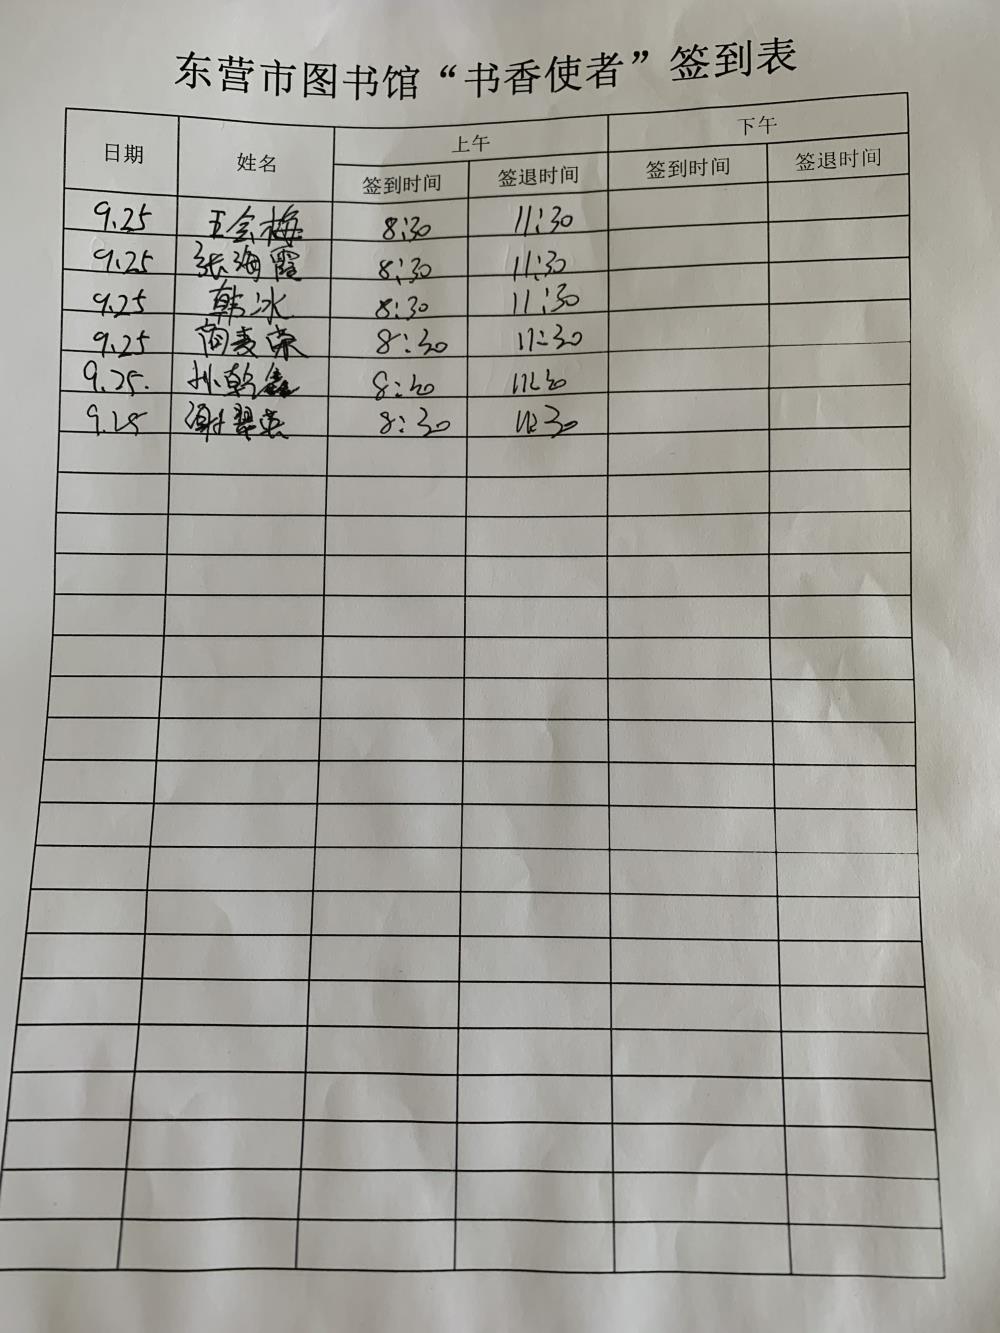 东营市图书馆“书香使者”签到表
日期 姓名 上午 下午
签到时间 签退时间 签到时间 签退时间
9.25 王会梅 8:30 11:30
9.25 张海霞 8:30 11:30
9.25 韩冰 8:30 11:30
9.25 8:30 11:30
9.25. 孙乾鑫 8:30 11:30
9.25 谢翠英 8:30 11:30